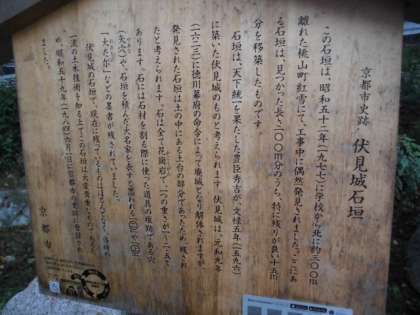 京都市史跡 伏見城石垣
この石垣は、昭和五十二年(一九七七)に学校から北に約三〇〇m
離れた桃山町紅雪にて、工事中に偶然発見されました。ここにあ
る石垣は、見つかった長さ一〇〇m分のうち、特に残りが良い十五m
分を移築したものです。
石垣は、天下統一を果たした豊臣秀吉が、文禄五年(一五九六)
に築いた伏見城のものと考えられます。伏見城は、元和九年
(一六二三)に徳川幕府の命令によって廃城となり解体されますが、
発見された石垣は土の中にある土台の部分であったため、残され
たと考えられます。石は全て花崗岩で、一つの重さが
あります。石には石材を割る際に使った道具の痕跡である穴
(矢穴)や、石垣を積んだ大名家を表すと思われる
などの墨書が残されていました。
伏見城の石垣で、現在に残って
の土木技術を知る上でこの石垣は大変
め、昭和五十九年(一九八四)六月一日に京都市の史跡に登録され
ました。
京都市